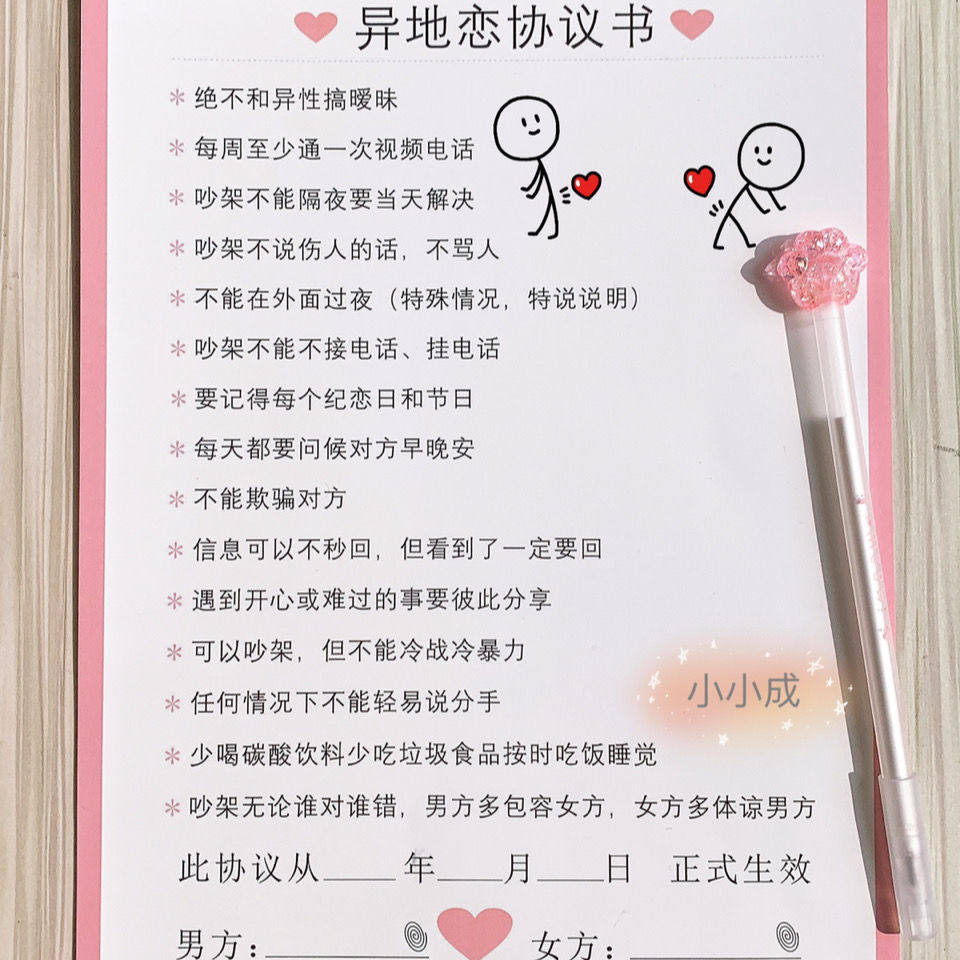 异地恋协议书
* 绝不和异性搞暧昧
* 每周至少通一次视频电话
* 吵架不能隔夜要当天解决
* 吵架不说伤人的话，不骂人
* 不能在外面过夜（特殊情况，特说说明）
* 吵架不能不接电话、挂电话
* 要记得每个纪恋日和节日
* 每天都要问候对方早晚安
* 不能欺骗对方
* 信息可以不秒回，但看到了一定要回
* 遇到开心或难过的事要彼此分享
* 可以吵架，但不能冷战冷暴力
小小成
* 任何情况下不能轻易说分手
* 少喝碳酸饮料少吃垃圾食品按时吃饭睡觉
* 吵架无论谁对谁错，男方多包容女方，女方多体谅男方
此协议从____年____月____日 正式生效
男方：________ 女方：________